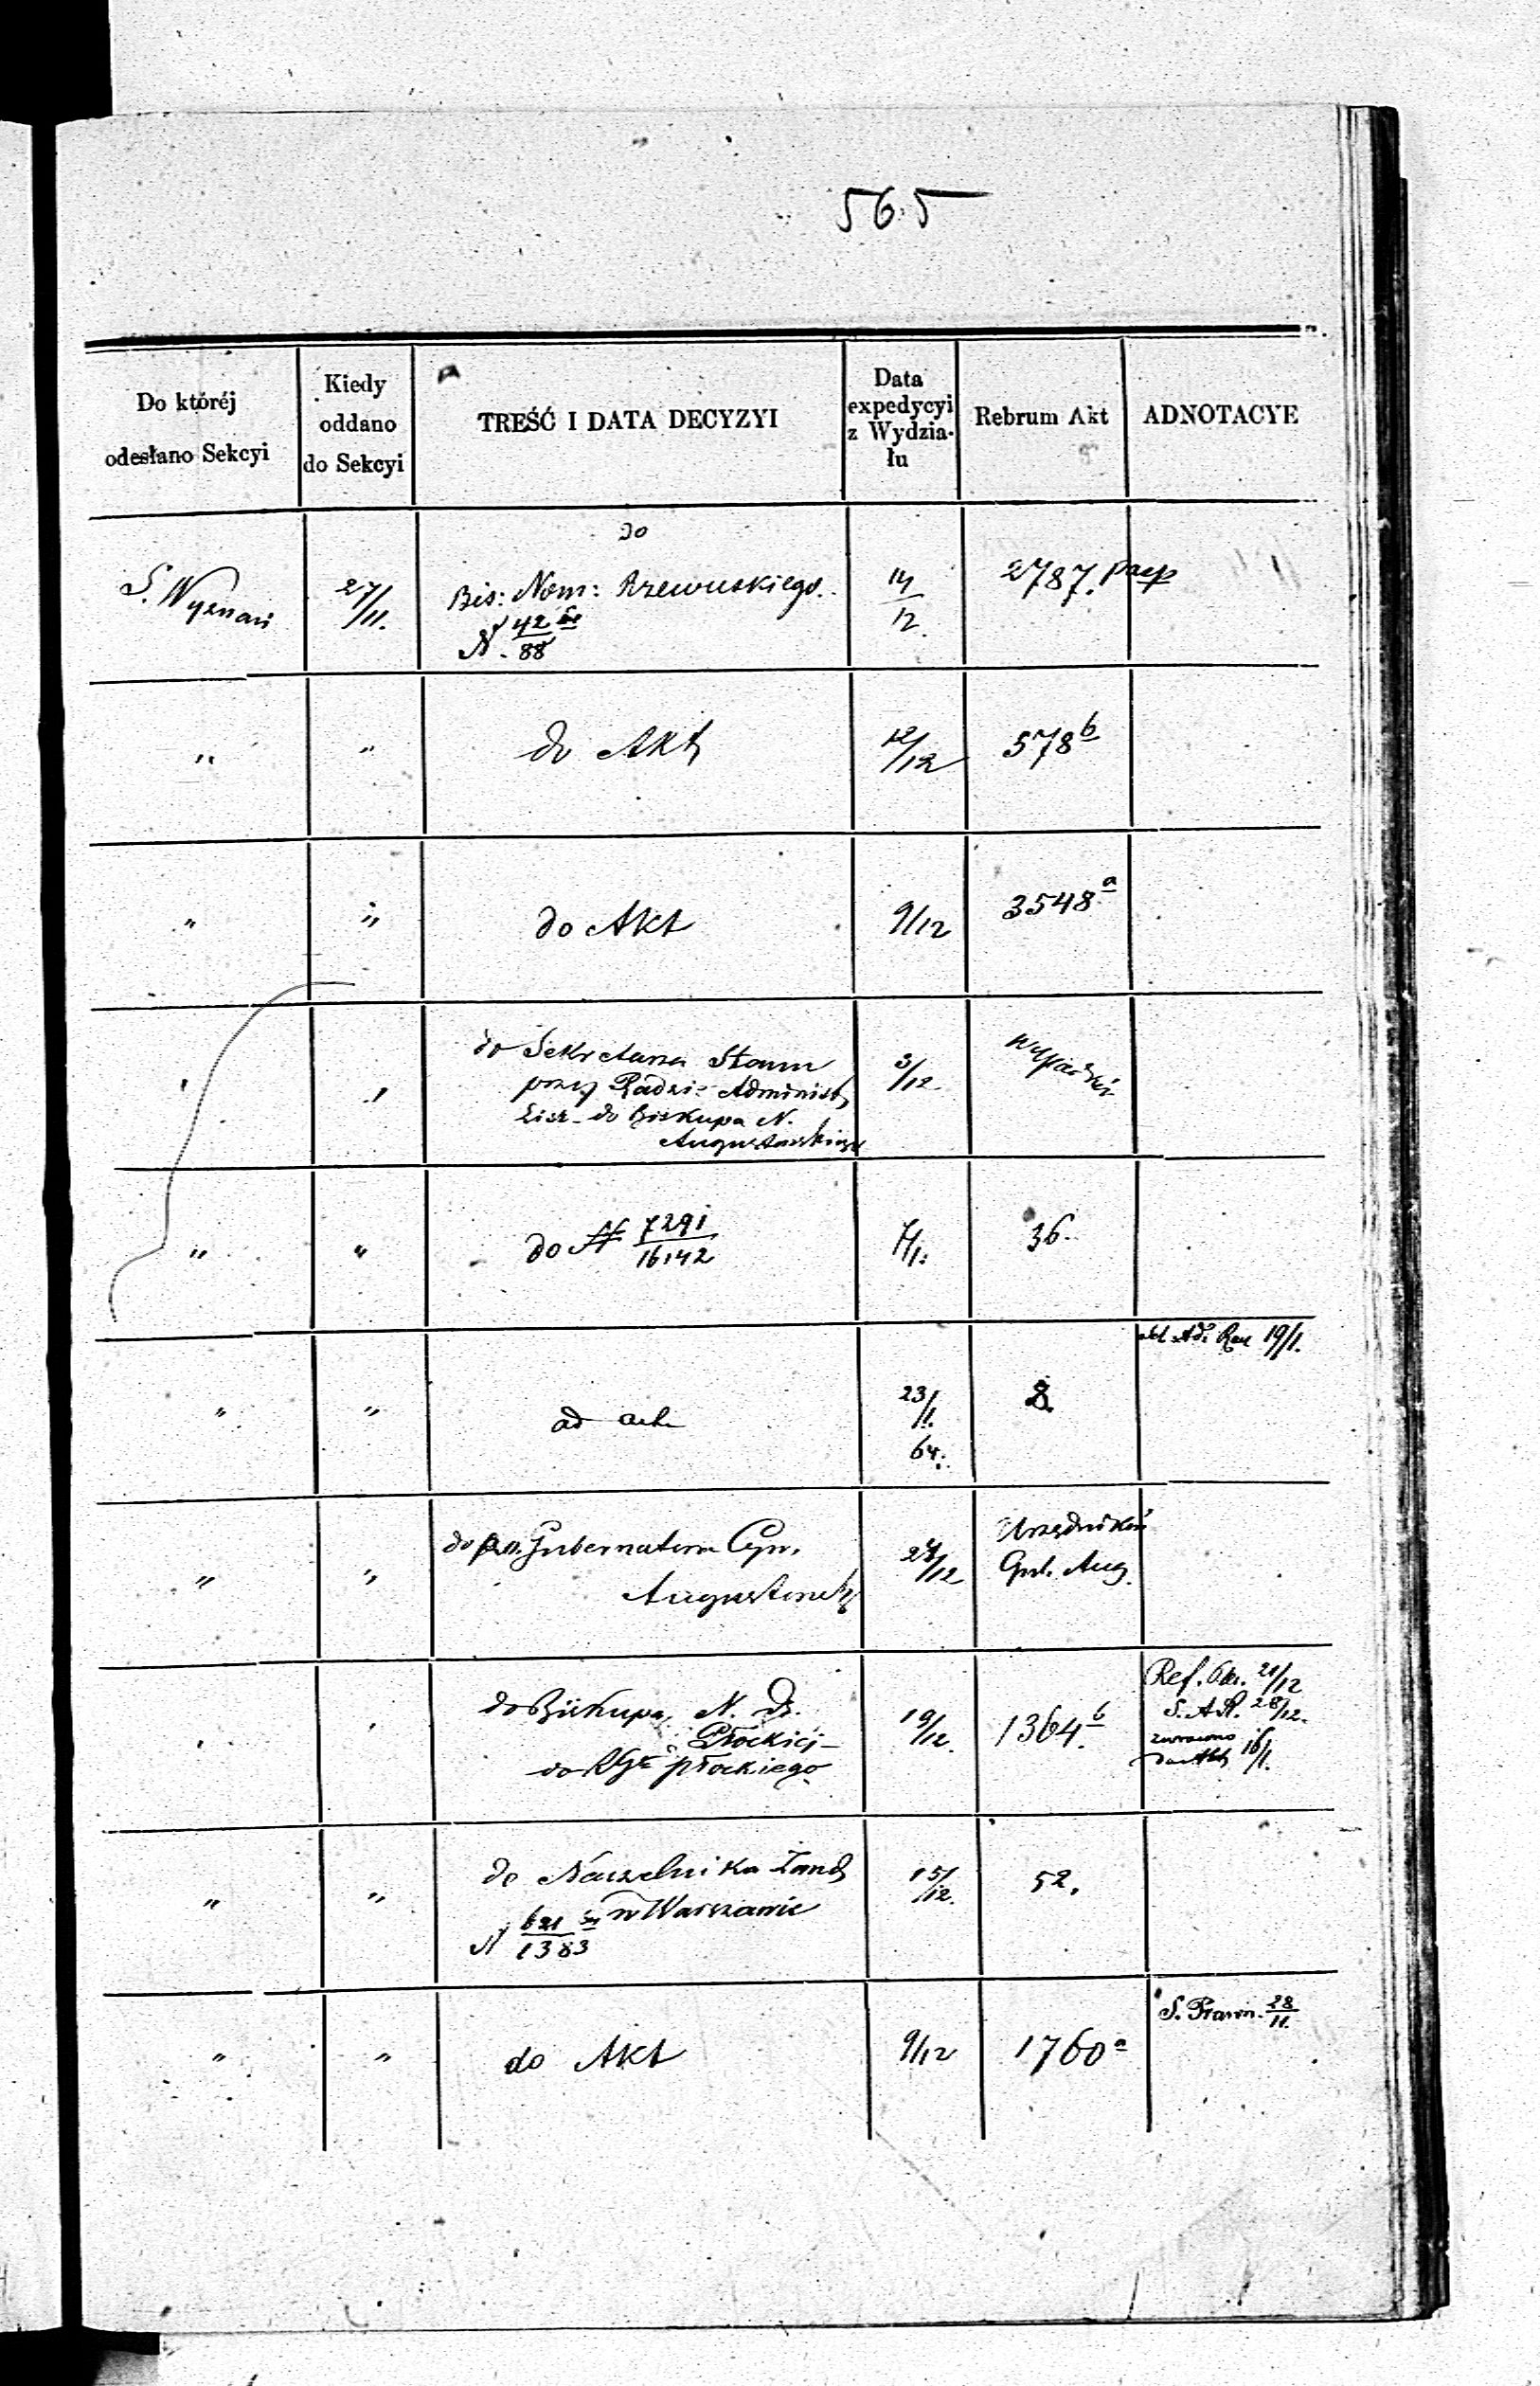 565
Do któréj
odesłano Sekcyi
Kiedy
oddano
do Sekcyi
TREŚĆ I DATA DECYZYI
Data
expedycyi
z Wydzia-
łu
Rebrum Akt
ADNOTACYE
S. Wyznań
27/11.
do
Bis: Nom: Rzewuskiego.
N. 42/88
14/12.
2787.
"
"
do Akt
12/12
578 b
"
"
do Akt
9/12
3548 a
"
"
do Sekretarza Stanu
przy Radzie Administ
do Biskupa N.
Augustowskiego
3/12.
Wypadki
"
"
do N 7291/16142
36.
"
"
ad acta
23/1.
64.
8.
19/1.
"
"
do Gubernatora Cyw.
Augustowsk
24/12
Urzędników
Gub. Aug.
"
"
do Biskupa N. D.
Płockiej
do płockiego
19/12.
1364. b
Ref. 21/12
S. 28/12.
zwrócono
do Akt 16/1.
"
"
do Naczelnika Żand
N 621/1383 w Warszawie
15/12.
52.
"
"
do Akt
9/12
1760 a
S. Prawn. 28/11.